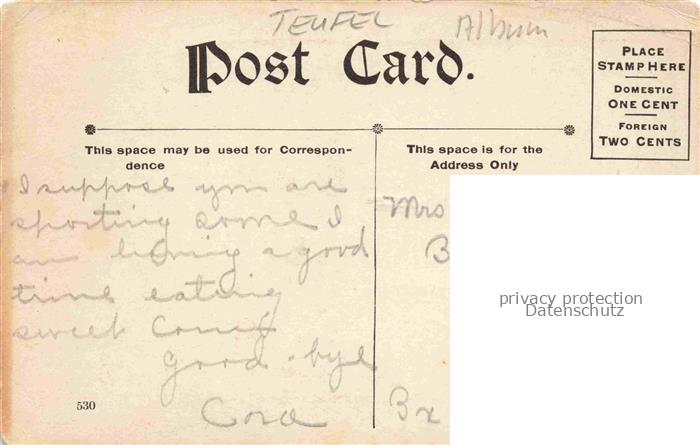 TEUFEL Album
Post Card.
PLACE
STAMP HERE
DOMESTIC
ONE CENT
FOREIGN
TWO CENTS
This space may be used for Correspon-
dence
This space is for the
Address Only
I suppose you are
sporting some I
am having a good
time eating
sweet
good-bye
Cora
530
Mrs
B
Bx
privacy protection
Datenschutz